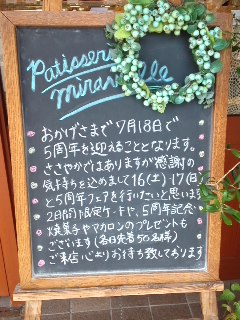 Patisserie
miravelle
おかげさまで7月18日で
5周年を迎えることとなります。
ささやかではありますが感謝の
気持ちを込めまして16(土)・17(日)
と5周年フェアを行いたいと思います
2日間限定ケーキや、5周年記念
焼菓子やマカロンのプレゼントも
ございます(各日先着50名様)
ご来店心よりお待ち致しております